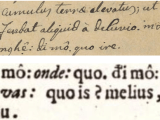 cumulus terræ elevatus; ut
aliquid à deluvio. mo
nghê: đi mô, quo ire.
mô: onde: quo. đi mô:
vas: quo is? melius,
u.